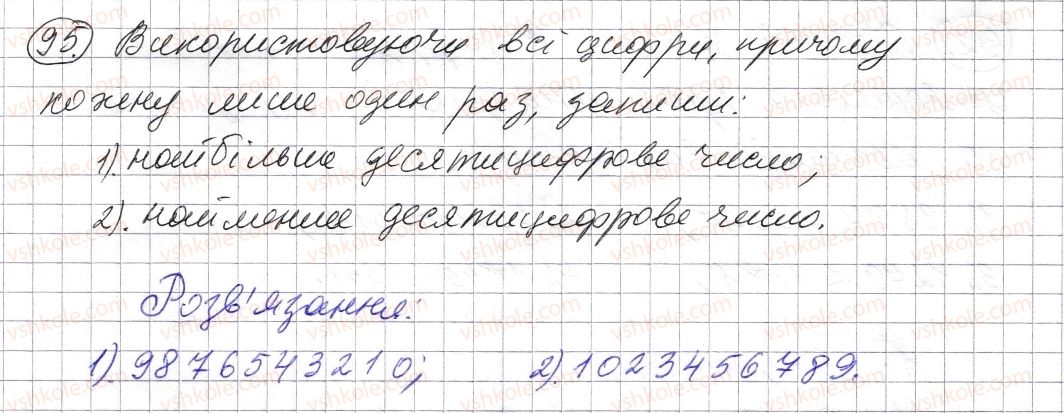 95. Використовуючи всі цифри, причому
кожену лише один раз, запиши:
1). найбільше десятицифрове число;
2). найменше десятицифрове число.
Розв'язання:
1). 9876543210; 2). 1023456789.